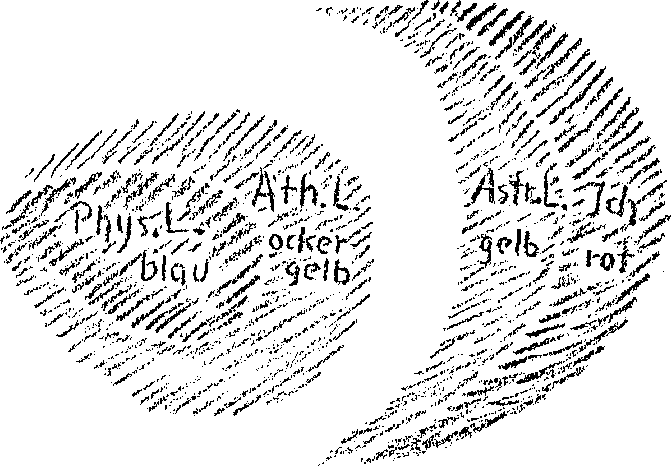 Phys.L.
blau
Äth.L.
ocker-
gelb
Astr.L.
gelb
Ich
rot